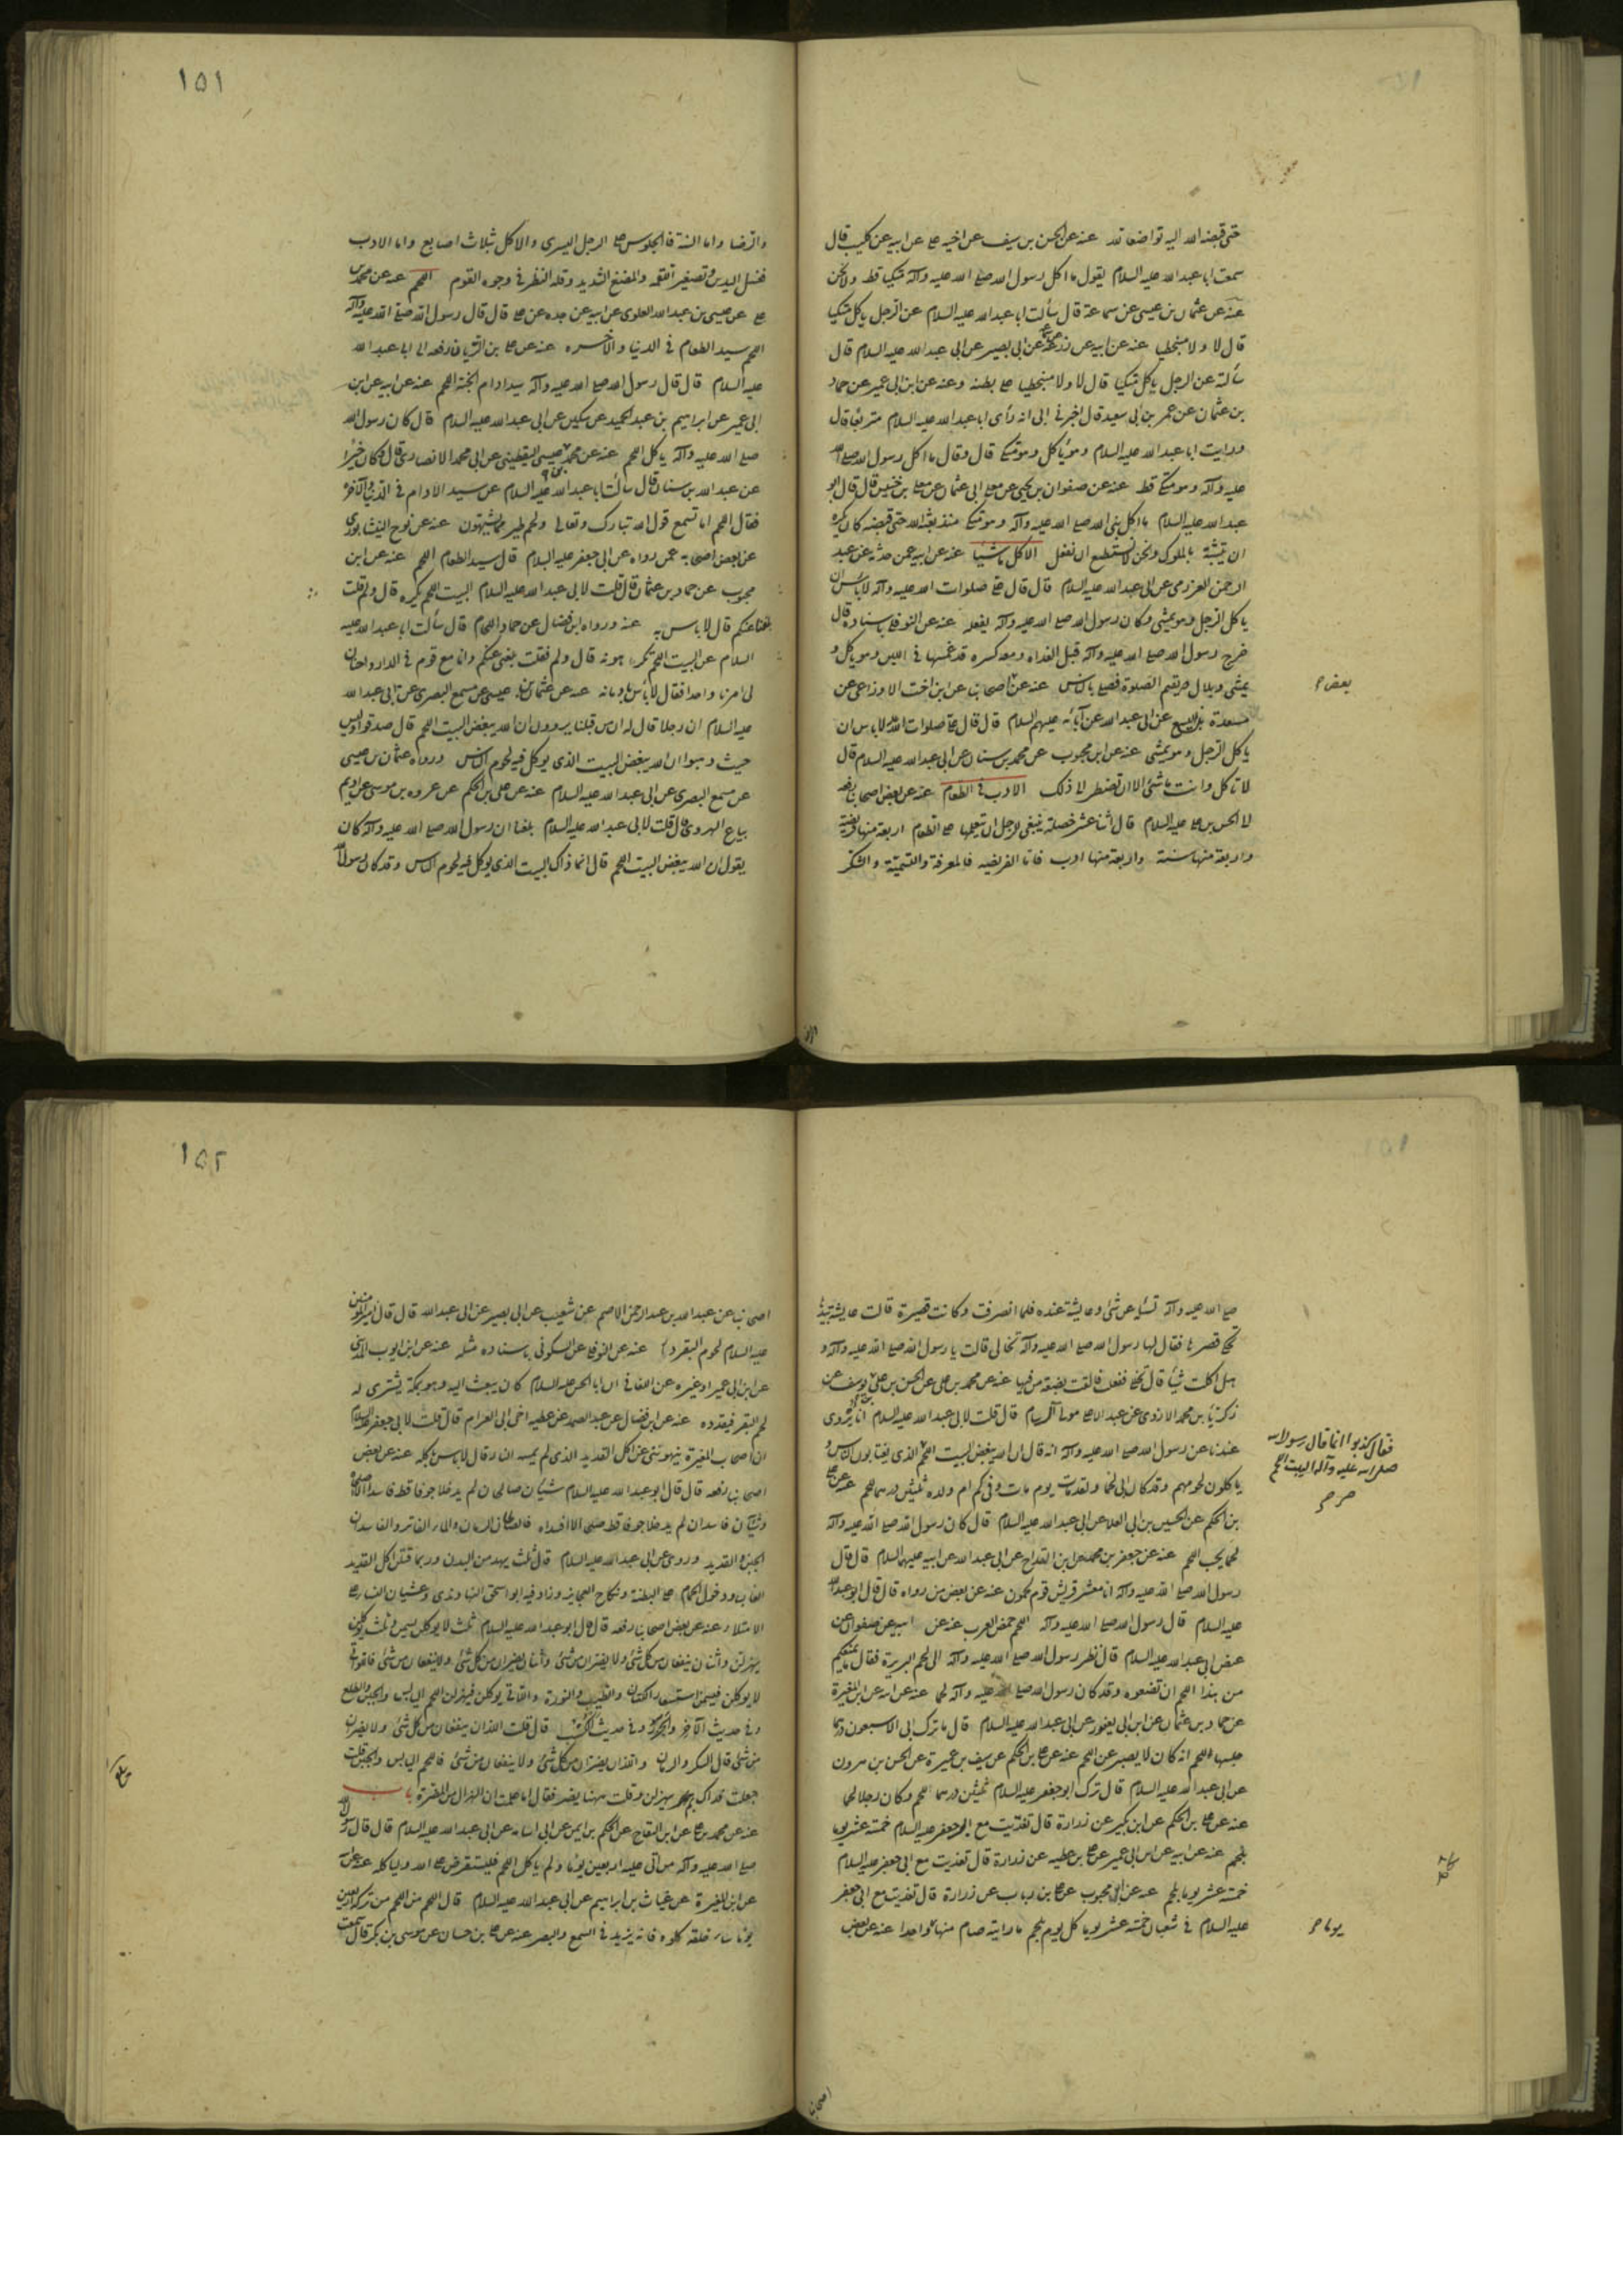 حتى قبضه الله اليه تواضعا لله عنه عن الحسن بن سيف عن اخيه على عن ابيه عن كليب قال
سمعت ابا عبد الله عليه السلام يقول ما اكل رسول الله صلى الله عليه وآله متكيا قط ولا نحن
عنه عن عثمان بن عيسى عن سماعة قال سألت ابا عبد الله عليه السلام عن الرجل ياكل متكيا
قال لا ولا منبطحا عنه عن ابيه عن زرعة عن ابى بصير عن ابى عبد الله عليه السلام قال
سألته عن الرجل ياكل متكيا قال لا ولا منبطحا على بطنه وعنه عن ابن ابى عمير عن حماد
بن عثمان عن عمر بن ابى سعيد قال اخبرنى ابى انه رأى ابا عبد الله عليه السلام متربعا قال
ورايت ابا عبد الله عليه السلام وهو يأكل وهو متكى قال وقال ما اكل رسول الله صلى الله
عليه وآله وهو متكى قط عنه عن صفوان بن يحيى عن معلى ابى عثمان عن معلى بن خنيس قال قال ابو
عبد الله عليه السلام ما اكل نبى الله صلى الله عليه وآله وهو متكى منذ بعثه الله حتى قبضه كان يكره
ان يتشبه بالملوك ونحن لا نستطيع ان نفعل الاكل ماشيا عنه عن ابيه عمن حدثه عن عبد
الرحمن العزرمى عن ابى عبد الله عليه السلام قال قال على صلوات الله عليه وآله لا باس ان
ياكل الرجل وهو يمشى وكان رسول الله صلى الله عليه وآله يفعله عنه عن النوفلى باسناده قال
خرج رسول الله صلى الله عليه وآله قبل الغداه ومعه كسره قد غمسها فى اللبن وهو ياكل و
يمشى وبلال يقيم الصلوة فصلى بالناس عنه عن اصحابنا عن ابن اخت الاوزاعى عن
بعض م
مسعدة بن اليسع عن ابى عبد الله عن آبائه عليهم السلام قال قال على صلوات الله لا باس ان
ياكل الرجل وهو يمشى عنه عن ابن محبوب عن محمد بن سنان عن ابى عبد الله عليه السلام قال
لا تاكل وانت ماشئ الا ان تضطر الى ذلك الادب فى الطعام عنه عن بعض اصحابنا رفعه
الى الحسن بن على عليه السلام قال اثنا عشر خصلة ينبغى للرجل ان يتعلمها على الطعام اربعة منها فريضة
واربعة منها سنة واربعة منها ادب فاما الفريضه فالمعرفة والتسمية والشكر
١٥١
والرضا واما السنة فالجلوس على الرجل اليسرى والاكل بثلاث اصابع واما الادب
فغسل اليدين وتصغير اللقمه والمضغ الشديد وقلة النظر فى وجوه القوم اللحم عنه عن محمد بن
على عن عيسى بن عبد الله العلوى عن ابيه عن جده عن على قال قال رسول الله صلى الله عليه وآله
اللحم سيد الطعام فى الدنيا والآخره عنه عن على بن الريان رفعه الى ابا عبد الله
عليه السلام قال قال رسول الله صلى الله عليه وآله سيد ادام الجنة اللحم عنه عن ابيه عن ابن
ابى عمير عن ابراهيم بن عبد الحميد عن سكين عن ابى عبد الله عليه السلام قال كان رسول الله
صلى الله عليه وآله ياكل اللحم عنه عن محمد بن عيسى اليقطينى عن ابى محمد الانصارى قال وكان خيرا
عن عبد الله بن سنان قال سألت ابا عبد الله عليه السلام عن سيد الادام فى الدنيا والآخره
فقال اللحم اما تسمع قول الله تبارك وتعالى ولحم طير مما يشتهون عنه عن نوح النيشابورى
عن بعض اصحابه عمن رواه عن ابى جعفر عليه السلام قال سيد الطعام اللحم عنه عن ابن
محبوب عن حماد بن عثمان قال قلت لابى عبد الله عليه السلام البيت اللحم يكره قال ولم قلت
بلغنا عنكم قال لا باس به عنه ورواه ابن فضال عن حماد اللحام قال سألت ابا عبد الله عليه
السلام عن البيت اللحم تكرهونه قال ولم فقلت بلغنى عنكم وانا مع قوم فى الدار واخوان
لى امرنا واحد فقال لا باس بادمانه عنه عن عثمان بن عيسى عن مسمع البصرى عن ابى عبد الله
عليه السلام ان رجلا قال له ان من قبلنا يروون ان الله يبغض البيت اللحم قال صدقوا وليس
حيث ذهبوا ان الله يبغض البيت الذى يوكل فيه لحوم الناس ورواه عثمان بن عيسى
عن مسمع البصرى عن ابى عبد الله عليه السلام عنه عن على بن الحكم عن عروه بن موسى عن اديم
بياع الهروى قال قلت لابى عبد الله عليه السلام بلغنا ان رسول الله صلى الله عليه وآله كان
يقول ان الله يبغض البيت اللحم قال انما ذاك البيت الذى يوكل فيه لحوم الناس وقد كان رسول الله
صلى الله عليه وآله تسأله عن شئ وعايشة عنده فلما انصرفت وكانت قصيرة قالت عايشة بيدها
تحكى قصرها فقال لها رسول الله صلى الله عليه وآله تخللى قالت يا رسول الله صلى الله عليه وآله و
هل اكلت شيأ قال تخللى ففعلت فالقت بضعة من فيها عنه عن محمد بن على عن الحسن بن على بن يوسف عن
زكريا بن محمد الازدى عن عبد الاعلى مولى آل سام قال قلت لابى عبد الله عليه السلام انا نروى
عندنا عن رسول الله صلى الله عليه وآله انه قال ان الله يبغض البيت اللحم الذى يغتابون الناس و
فقال كذبوا انما قال رسول الله
صلى الله عليه وآله البيت اللحم
ياكلون لحومهم وقد كان ابى لحما ولقد مات يوم مات وفى كم ام ولده ثلثين درهما للحم عنه عن على
بن الحكم عن الحسين بن ابى العلا عن ابى عبد الله عليه السلام قال كان رسول الله صلى الله عليه وآله
لحما يحب اللحم عنه عن جعفر بن محمد عن ابن القداح عن ابى عبد الله عن ابيه عليهما السلام قال قال
رسول الله صلى الله عليه وآله انا معشر قريش قوم لحمون عنه عن بعض من رواه قال قال ابو عبد الله
عليه السلام قال رسول الله صلى الله عليه وآله اللحم حمض العرب عنه عن ابيه عن صفوان عن
عيص ابى عبد الله عليه السلام قال نظر رسول الله صلى الله عليه وآله الى لحم البريرة فقال ما يمنعكم
من هذا اللحم ان تصنعوه وقد كان رسول الله صلى الله عليه وآله لحما عنه عن ابيه عن ابن المغيرة
عن حماد بن عثمان عن ابن ابى يعفور عن ابى عبد الله عليه السلام قال ما ترك ابى الا سبعون درهما
حبسها للحم انه كان لا يصبر عن اللحم عنه عن على بن الحكم عن سيف بن عميرة عن الحسن بن هرون
عن ابى عبد الله عليه السلام قال ترك ابو جعفر عليه السلام ثلثين درهما للحم وكان رجلا لحما
عنه عن على بن الحكم عن ابن بكير عن زرارة قال تغذيت مع ابو جعفر عليه السلام خمسة عشر يوما
بلحم عنه عن ابيه عن ابن ابى عمير عن على بن عطيه عن زرارة قال تغذيت مع ابى جعفر عليه السلام
خمسة عشر يوما بلحم عنه عن ابن محبوب عن على بن رباب عن زرارة قال تغذيت مع ابى جعفر
عليه السلام فى شعبان خمسة عشر يوما كل يوم بلحم ما رايته صام منها واحدا عنه عن بعض
يوما م
اصحابنا
١٥٢
اصحابنا عن عبد الله بن عبد الرحمن الاصم عن شعيب عن ابى بصير عن ابى عبد الله قال قال امير المؤمنين
عليه السلام لحوم البقر داء عنه عن النوفلى عن السكونى باسناده مثله عنه عن ابن ايوب المدينى
عن ابن ابى عمير او غيره عن الحسن عليه السلام كان يبعث اليه وهو بمكة يشترى له
لحم البقر فيقدده عنه عن ابن فضال عن عبد الصمد عن عطيه اخى ابى العرام قال قلت لابى جعفر عليه السلام
ان اصحاب المغيرة ينهوننى عن اكل القديد الذى لم يمسه النار قال لا باس بكله عنه عن بعض
اصحابنا رفعه قال قال ابو عبد الله عليه السلام شيئان صالحان لم يدخلا جوفا قط فاسدا الا اصلحاه
وشيئان فاسدان لم يدخلا جوفا قط صالحا الا افسداه فالصالحان الرمان والماء الفاتر والفاسدان
الجبن والقديد وروى عن ابى عبد الله عليه السلام قال ثلث يهدمن البدن وربما قتلن اكل القديد
الغاب ودخول الحمام على البطنة ونكاح العجايز وزاد فيه ابو اسحق النهاوندى وغشيان النساء على
الامتلاء عنه عن بعض اصحابنا رفعه قال قال ابو عبد الله عليه السلام ثلث لا يوكلن يسمن وثلث يوكلن
يهزلن واثنان ينفعان من كل شئ ولا يضران من شئ واثنان يضران من كل شئ ولا ينفعان من شئ فاللواتى
لا يوكلن فيسمن استشعار الكتان والطيب والنورة واللاتى يوكلن فيهزلن اللحم اليابس والجبن والطلع
وفى حديث الآخر والجوز وفى حديث الكسب قال قلت اللذان ينفعان من كل شئ ولا يضران
من شئ قال السكر والرمان واللذان يضران من كل شئ ولا ينفعان من شئ فاللحم اليابس والجبن قلت
جعلت فداك ثم يهزلن وقلت ههنا يضر فقال اما علمت ان الهزال من المضرة باب
عنه عن محمد بن على عن ابن البقاح عن الحكم بن ايمن عن ابى اسامه عن ابى عبد الله عليه السلام قال قال رسول الله
صلى الله عليه وآله من اتى عليه اربعين يوما ولم ياكل اللحم فليستقرض على الله ولياكله عنه عن
عن ابن المغيرة عن غياث بن ابراهيم عن ابى عبد الله عليه السلام قال اللحم من اللحم من تركه اربعين
يوما ساء خلقه كلوه فانه يزيد فى السمع والبصر عنه عن على بن حسان عن موسى بن بكر قال سمعت